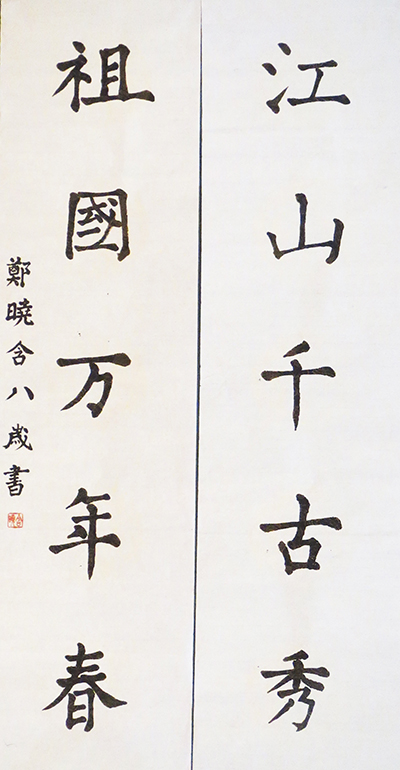 江山千古秀
祖國万年春
鄭曉含八歲書